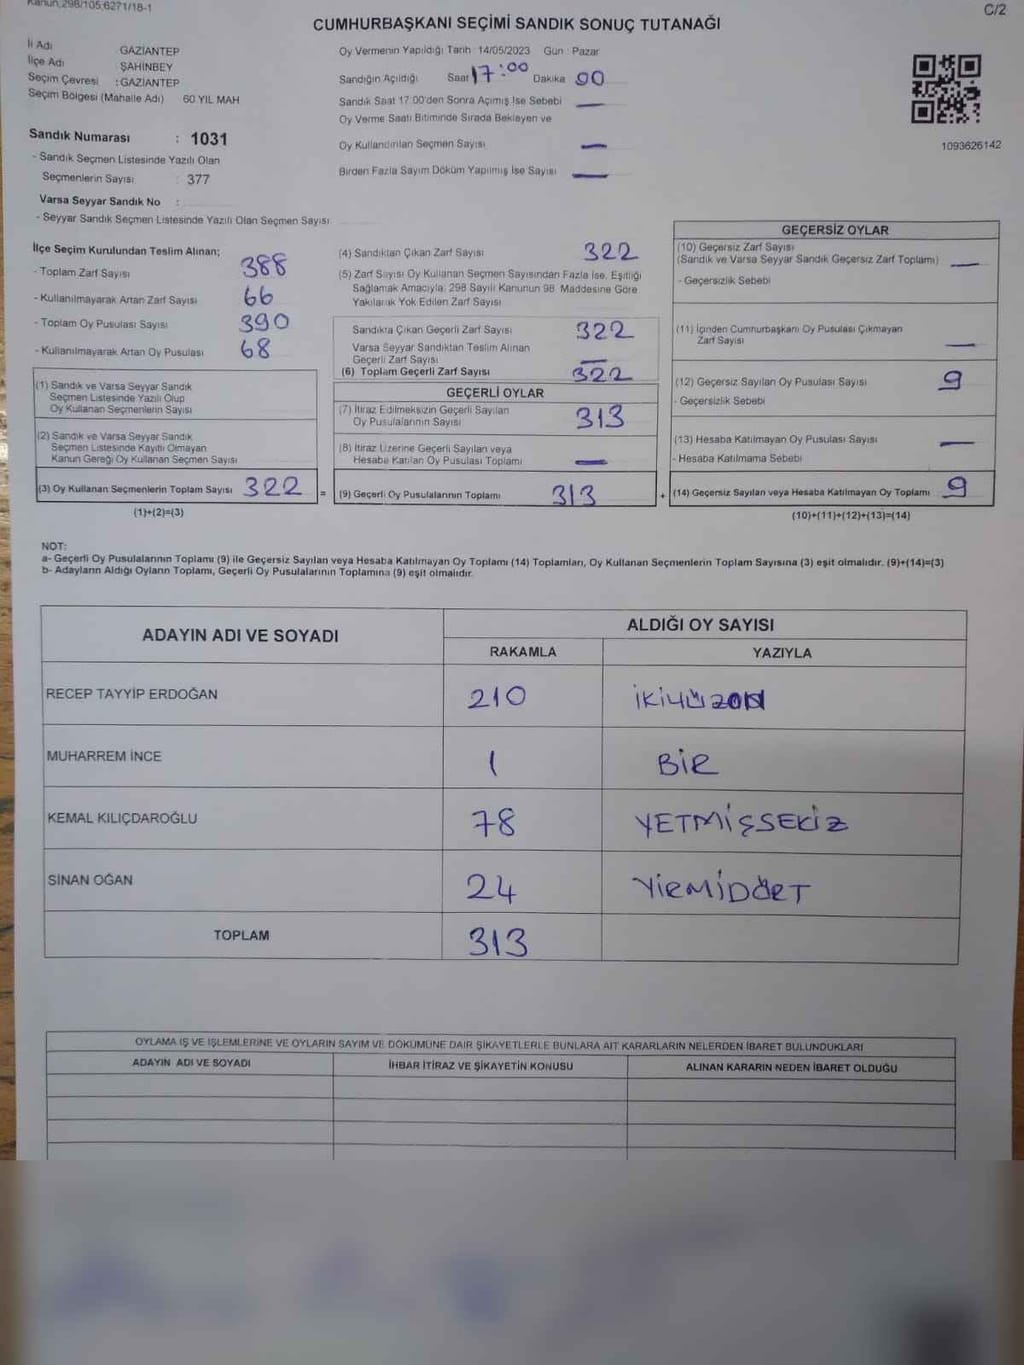 Kanun, 298/105,6271/18-1
C/2
CUMHURBAŞKANI SEÇİMİ SANDIK SONUÇ TUTANAĞI
İl Adı GAZİANTEP
İlçe Adı ŞAHİNBEY
Seçim Çevresi : GAZİANTEP
Seçim Bölgesi (Mahalle Adı) 60 YIL MAH
Sandık Numarası : 1031
- Sandık Seçmen Listesinde Yazılı Olan
Seçmenlerin Sayısı : 377
Varsa Seyyar Sandık No :
- Seyyar Sandık Seçmen Listesinde Yazılı Olan Seçmen Sayısı
Oy Vermenin Yapıldığı Tarih : 14/05/2023 Gün : Pazar
Sandığın Açıldığı Saat 17:00 Dakika 00
Sandık Saat 17:00'den Sonra Açılmış İse Sebebi —
Oy Verme Saati Bitiminde Sırada Bekleyen ve
Oy Kullandırılan Seçmen Sayısı —
Birden Fazla Sayım Döküm Yapılmış İse Sayısı —
1093626142
İlçe Seçim Kurulundan Teslim Alınan;
- Toplam Zarf Sayısı 388
- Kullanılmayarak Artan Zarf Sayısı 66
- Toplam Oy Pusulası Sayısı 390
- Kullanılmayarak Artan Oy Pusulası 68
(1) Sandık ve Varsa Seyyar Sandık
Seçmen Listesinde Yazılı Olup
Oy Kullanan Seçmenlerin Sayısı
(2) Sandık ve Varsa Seyyar Sandık
Seçmen Listesinde Kayıtlı Olmayan
Kanun Gereği Oy Kullanan Seçmen Sayısı
(3) Oy Kullanan Seçmenlerin Toplam Sayısı 322 =
(1)+(2)=(3)
(4) Sandıktan Çıkan Zarf Sayısı 322
(5) Zarf Sayısı Oy Kullanan Seçmen Sayısından Fazla İse, Eşitliği
Sağlamak Amacıyla, 298 Sayılı Kanunun 98. Maddesine Göre
Yakılarak Yok Edilen Zarf Sayısı
Sandıkta Çıkan Geçerli Zarf Sayısı 322
Varsa Seyyar Sandıktan Teslim Alınan
Geçerli Zarf Sayısı —
(6) Toplam Geçerli Zarf Sayısı 322
GEÇERLİ OYLAR
(7) İtiraz Edilmeksizin Geçerli Sayılan
Oy Pusulalarının Sayısı 313
(8) İtiraz Üzerine Geçerli Sayılan veya
Hesaba Katılan Oy Pusulası Toplamı —
(9) Geçerli Oy Pusulalarının Toplamı 313 +
GEÇERSİZ OYLAR
(10) Geçersiz Zarf Sayısı
(Sandık ve Varsa Seyyar Sandık Geçersiz Zarf Toplamı) —
- Geçersizlik Sebebi
(11) İçinden Cumhurbaşkanı Oy Pusulası Çıkmayan
Zarf Sayısı —
(12) Geçersiz Sayılan Oy Pusulası Sayısı 9
- Geçersizlik Sebebi
(13) Hesaba Katılmayan Oy Pusulası Sayısı —
- Hesaba Katılmama Sebebi
(14) Geçersiz Sayılan veya Hesaba Katılmayan Oy Toplamı 9
(10)+(11)+(12)+(13)=(14)
NOT:
a- Geçerli Oy Pusulalarının Toplamı (9) ile Geçersiz Sayılan veya Hesaba Katılmayan Oy Toplamı (14) Toplamları, Oy Kullanan Seçmenlerin Toplam Sayısına (3) eşit olmalıdır. (9)+(14)=(3)
b- Adayların Aldığı Oyların Toplamı, Geçerli Oy Pusulalarının Toplamına (9) eşit olmalıdır.
ADAYIN ADI VE SOYADI ALDIĞI OY SAYISI
RAKAMLA YAZIYLA
RECEP TAYYİP ERDOĞAN 210 İKİYÜZON
MUHARREM İNCE 1 BİR
KEMAL KILIÇDAROĞLU 78 YETMİŞSEKİZ
SİNAN OĞAN 24 YİRMİDÖRT
TOPLAM 313
OYLAMA İŞ VE İŞLEMLERİNE VE OYLARIN SAYIM VE DÖKÜMÜNE DAİR ŞİKAYETLERLE BUNLARA AİT KARARLARIN NELERDEN İBARET BULUNDUKLARI
ADAYIN ADI VE SOYADI İHBAR İTİRAZ VE ŞİKAYETİN KONUSU ALINAN KARARIN NEDEN İBARET OLDUĞU